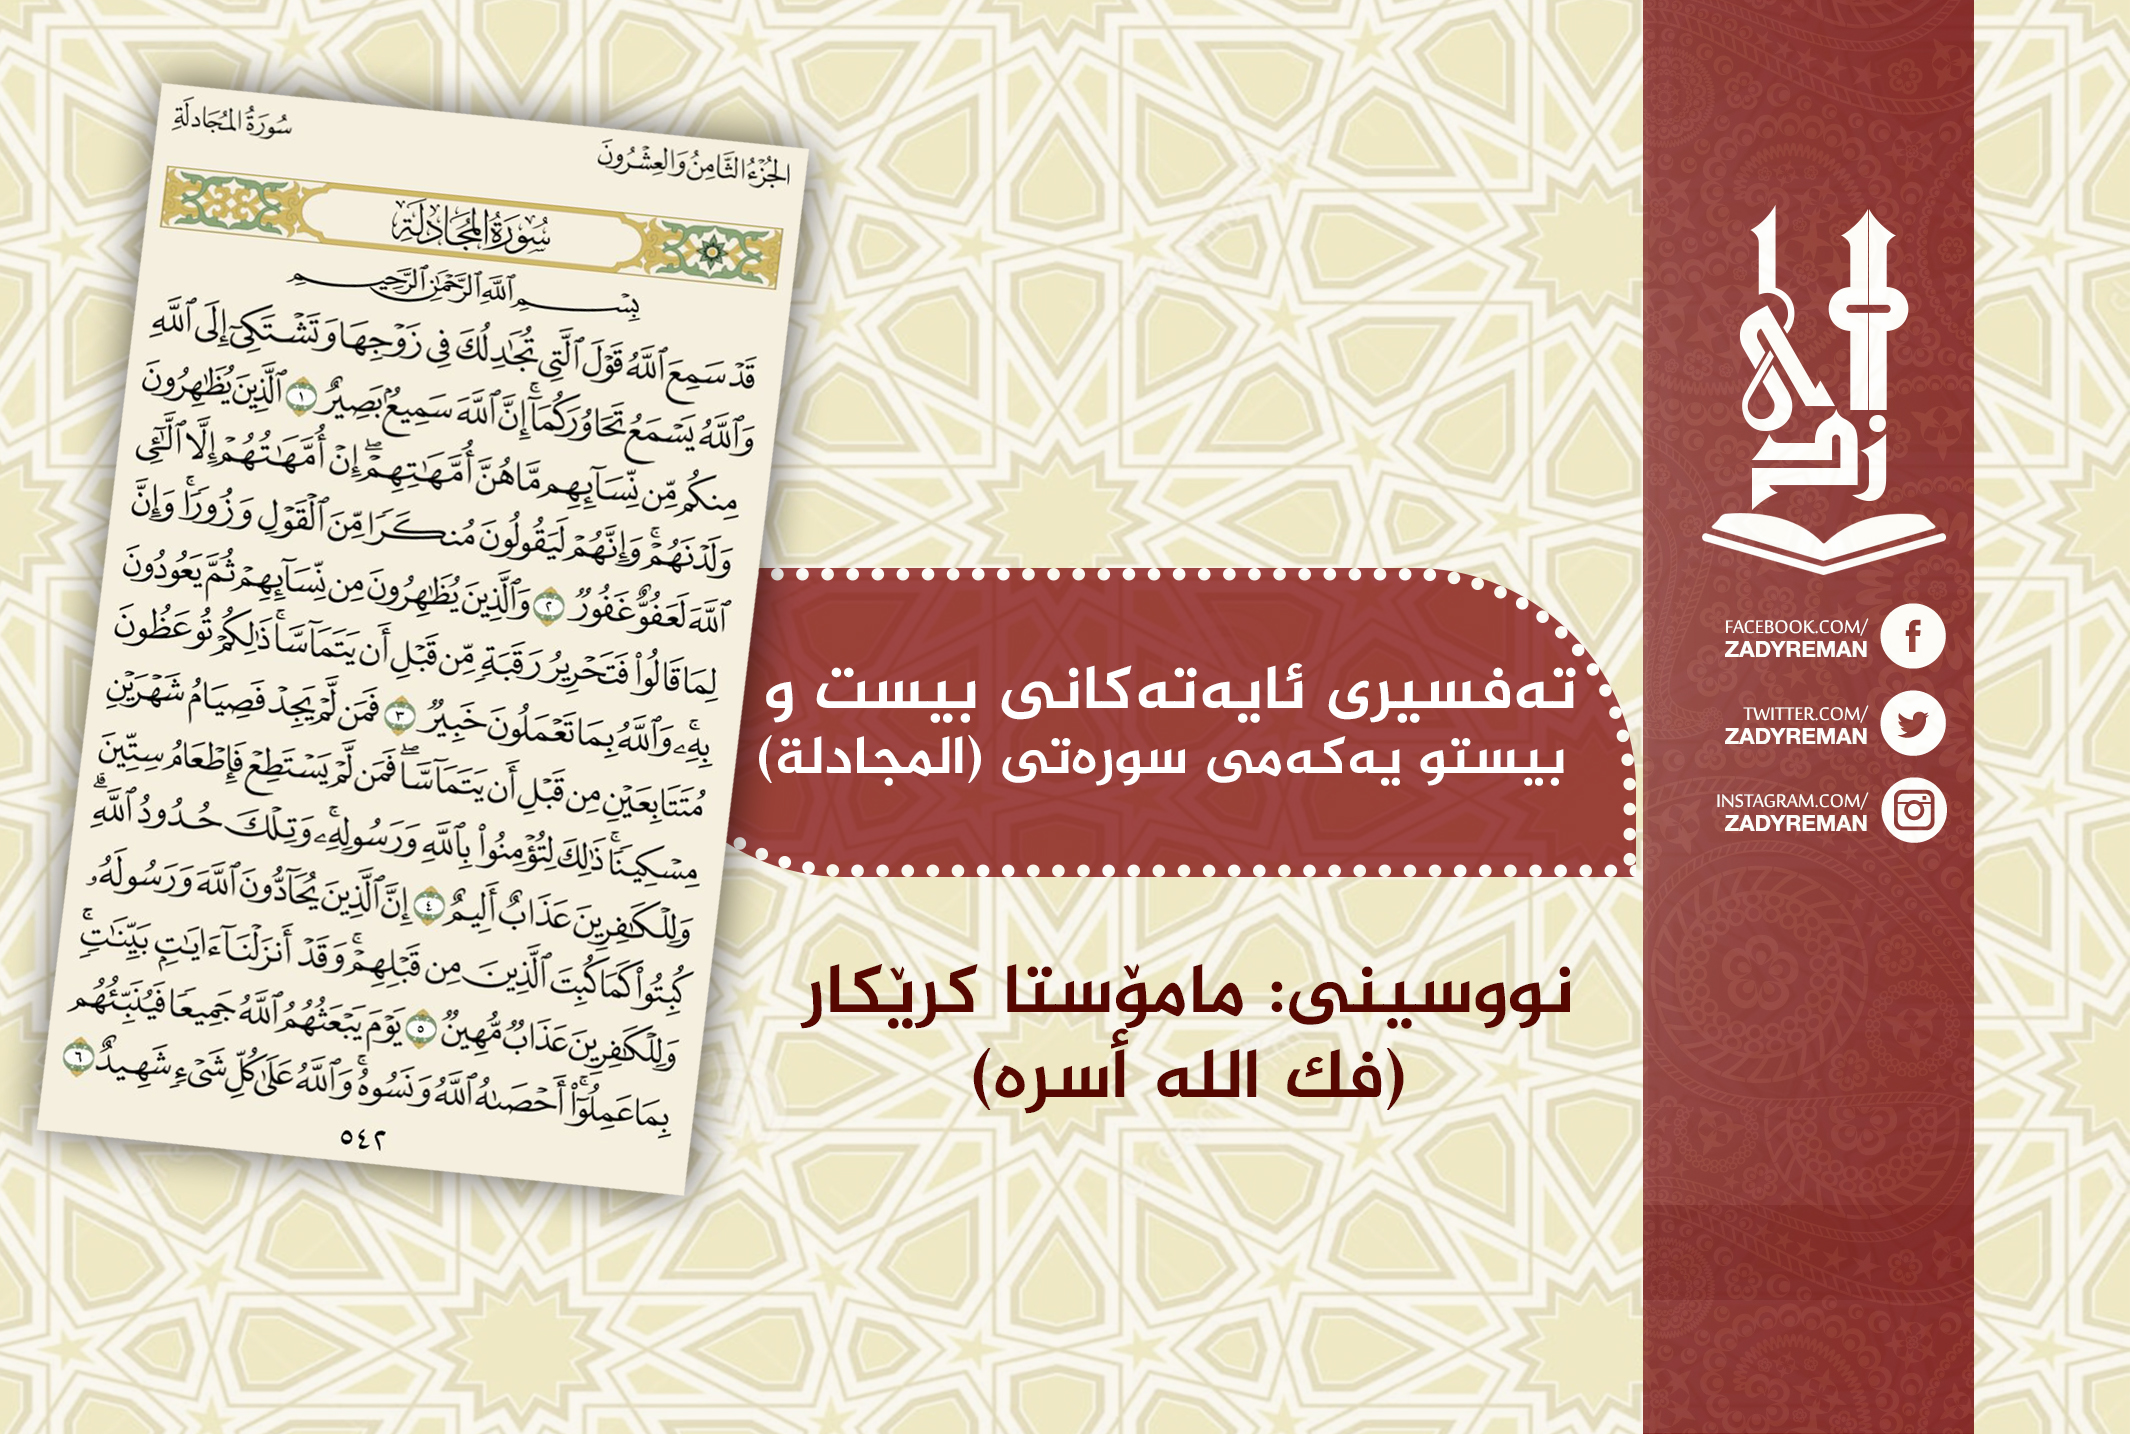 الجُزْءُ الثَّامِنُ وَالعِشْرُونَ
سُورَةُ المُجَادلَةِ
سُورَةُ المُجَادلَةِ
بِسۡمِ ٱللَّهِ ٱلرَّحۡمَٰنِ ٱلرَّحِيمِ
قَدۡ سَمِعَ ٱللَّهُ قَوۡلَ ٱلَّتِي تُجَٰدِلُكَ فِي زَوۡجِهَا وَتَشۡتَكِيٓ إِلَى ٱللَّهِ
وَٱللَّهُ يَسۡمَعُ تَحَاوُرَكُمَآۚ إِنَّ ٱللَّهَ سَمِيعُۢ بَصِيرٌ ١ ٱلَّذِينَ يُظَٰهِرُونَ
مِنكُم مِّن نِّسَآئِهِم مَّا هُنَّ أُمَّهَٰتِهِمۡۖ إِنۡ أُمَّهَٰتُهُمۡ إِلَّا ٱلَّٰٓـِٔي
وَلَدۡنَهُمۡۚ وَإِنَّهُمۡ لَيَقُولُونَ مُنكَرٗا مِّنَ ٱلۡقَوۡلِ وَزُورٗاۚ وَإِنَّ
ٱللَّهَ لَعَفُوٌّ غَفُورٞ ٢ وَٱلَّذِينَ يُظَٰهِرُونَ مِن نِّسَآئِهِمۡ ثُمَّ يَعُودُونَ
لِمَا قَالُواْ فَتَحۡرِيرُ رَقَبَةٖ مِّن قَبۡلِ أَن يَتَمَآسَّاۚ ذَٰلِكُمۡ تُوعَظُونَ
بِهِۦۚ وَٱللَّهُ بِمَا تَعۡمَلُونَ خَبِيرٞ ٣ فَمَن لَّمۡ يَجِدۡ فَصِيَامُ شَهۡرَيۡنِ
مُتَتَابِعَيۡنِ مِن قَبۡلِ أَن يَتَمَآسَّاۖ فَمَن لَّمۡ يَسۡتَطِعۡ فَإِطۡعَامُ سِتِّينَ
مِسۡكِينٗاۚ ذَٰلِكَ لِتُؤۡمِنُواْ بِٱللَّهِ وَرَسُولِهِۦۚ وَتِلۡكَ حُدُودُ ٱللَّهِۗ
وَلِلۡكَٰفِرِينَ عَذَابٌ أَلِيمٌ ٤ إِنَّ ٱلَّذِينَ يُحَآدُّونَ ٱللَّهَ وَرَسُولَهُۥ
كُبِتُواْ كَمَا كُبِتَ ٱلَّذِينَ مِن قَبۡلِهِمۡۚ وَقَدۡ أَنزَلۡنَآ ءَايَٰتِۭ بَيِّنَٰتٖۚ
وَلِلۡكَٰفِرِينَ عَذَابٞ مُّهِينٞ ٥ يَوۡمَ يَبۡعَثُهُمُ ٱللَّهُ جَمِيعٗا فَيُنَبِّئُهُم
بِمَا عَمِلُوٓاْۚ أَحۡصَىٰهُ ٱللَّهُ وَنَسُوهُۚ وَٱللَّهُ عَلَىٰ كُلِّ شَيۡءٖ شَهِيدٌ ٦
٥٤٢
تەفسیری ئایەتەکانی بیست و
بیستو یەکەمی سورەتی (المجادلة)
نووسینی: مامۆستا کرێکار
(فك الله أسره)
زادی
FACEBOOK.COM/
ZADYREMAN
TWITTER.COM/
ZADYREMAN
INSTAGRAM.COM/
ZADYREMAN